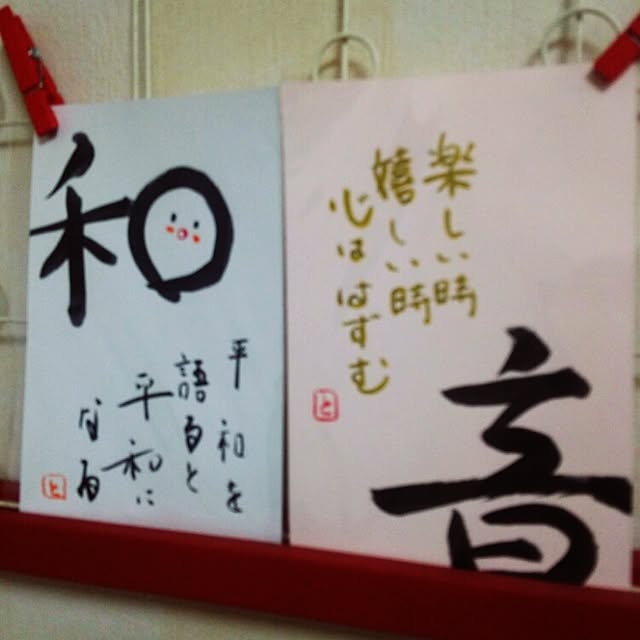 和
平和を
語ると
平和に
なる
と
楽しい時
嬉しい時
心ははずむ
音
と